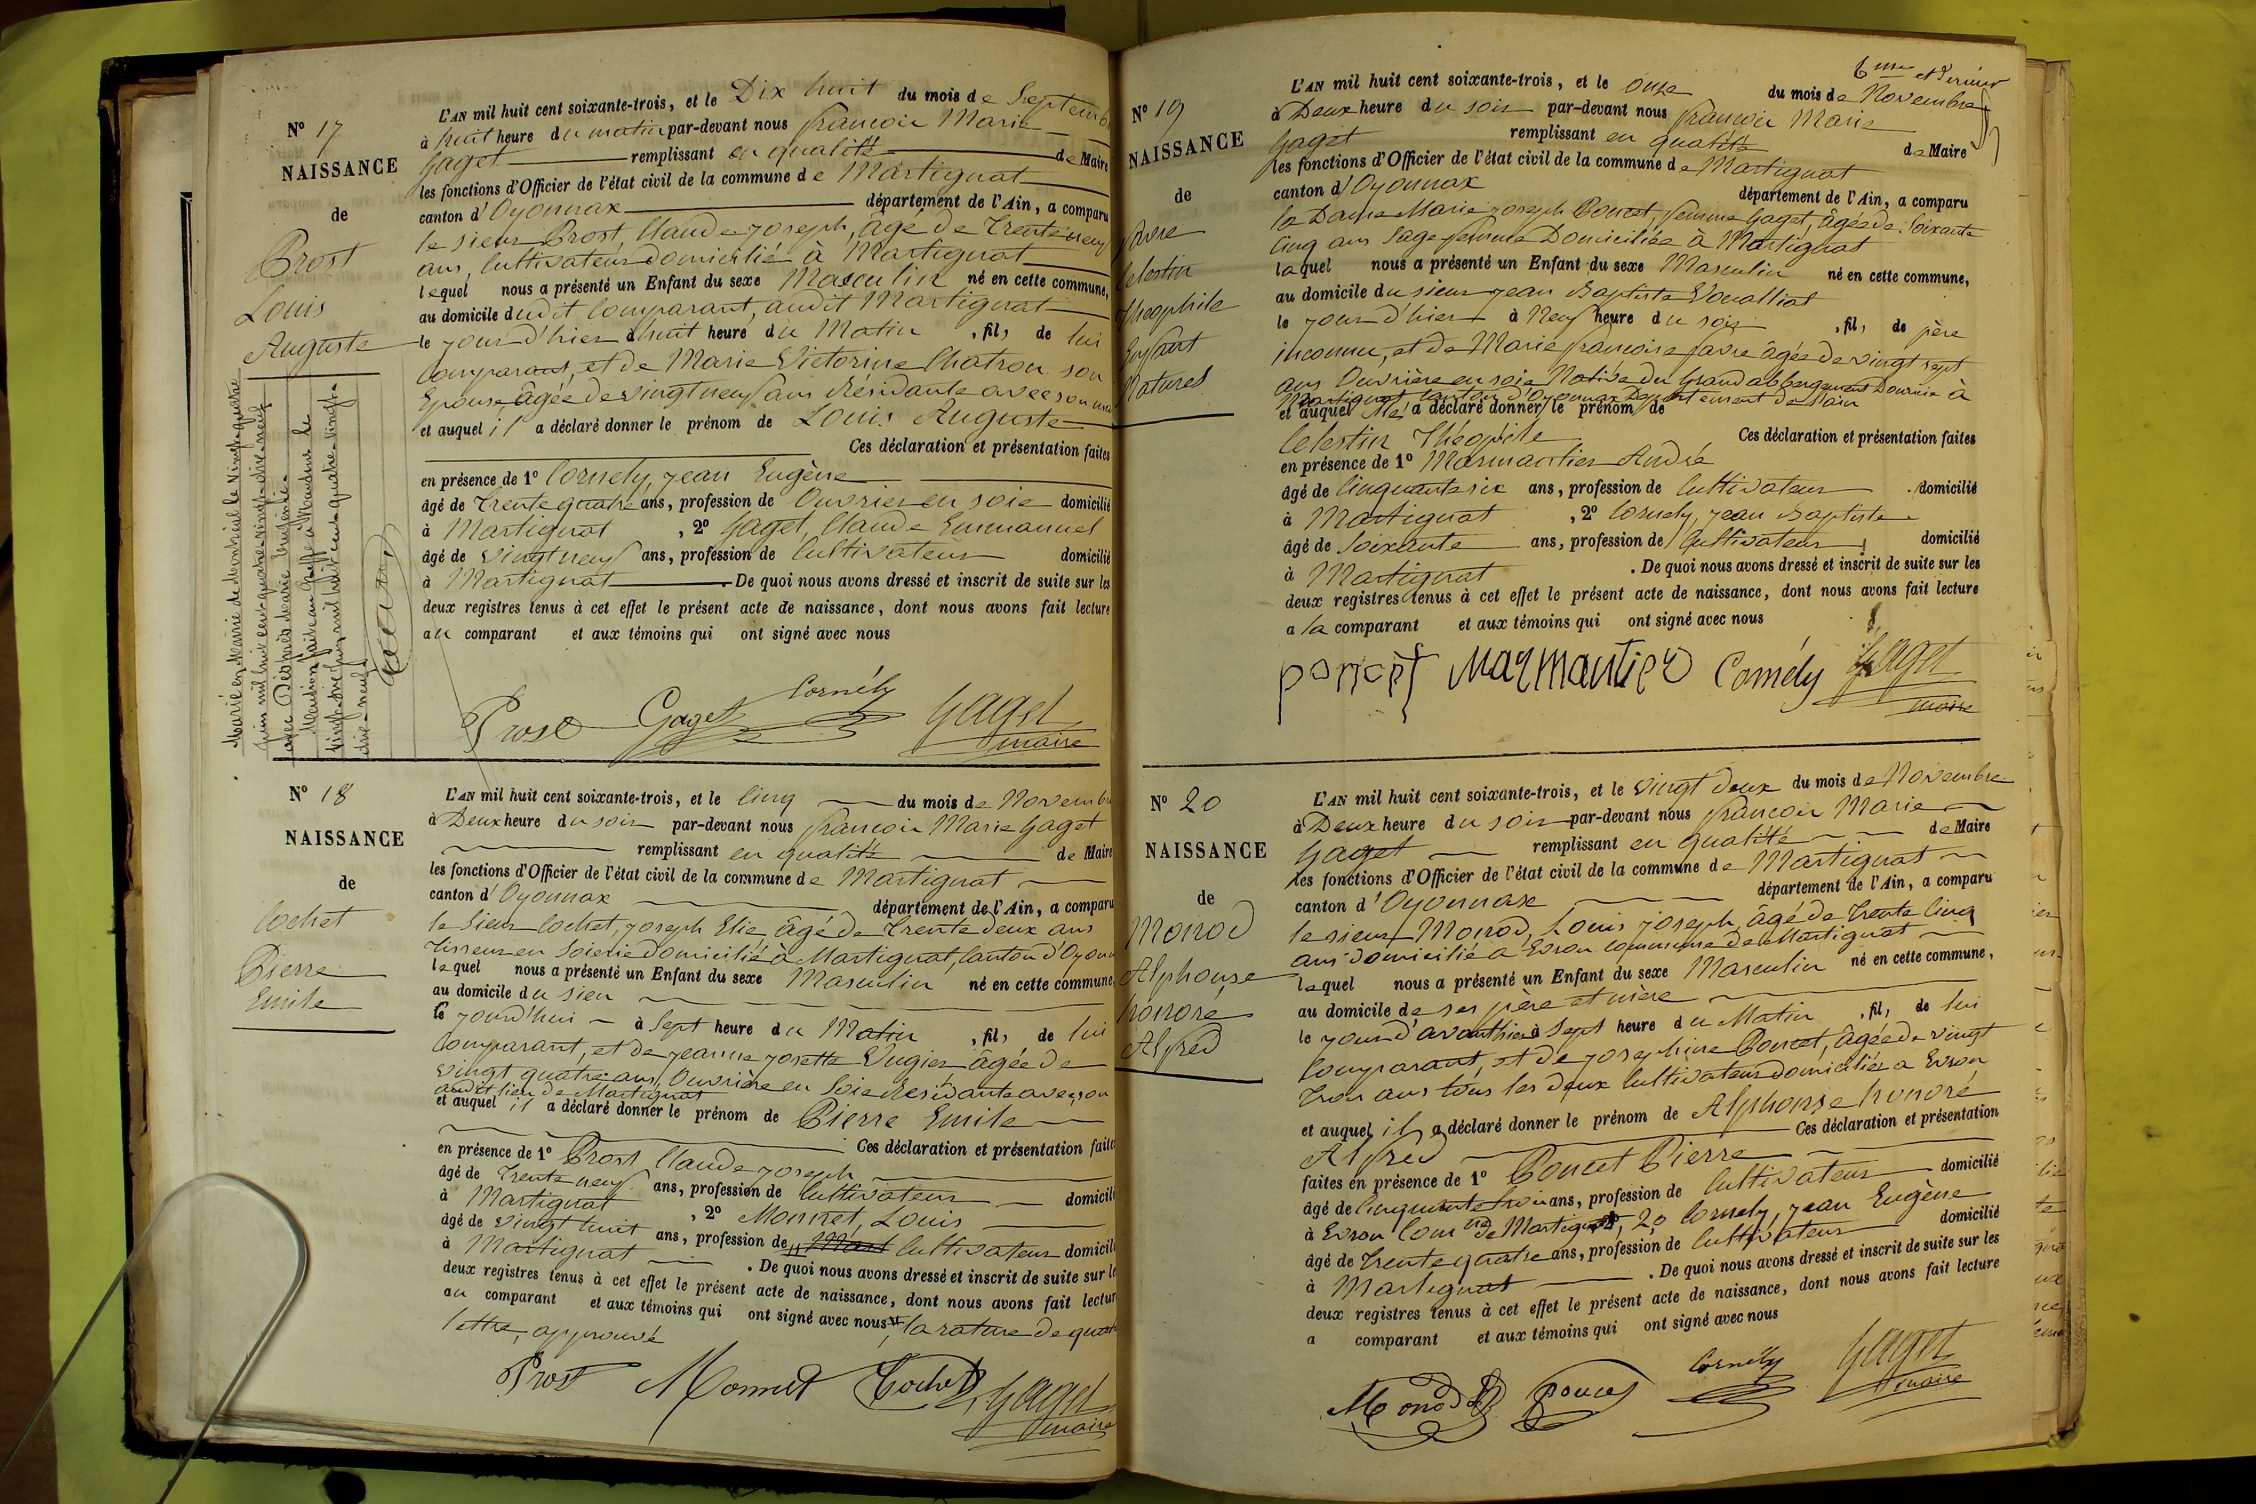 N° 17
NAISSANCE
de
Prost
Louis
Auguste
Marié en Mairie de Montréal le vingt-quatre
juin mil huit cent quatre-vingt-dix-neuf
avec Désprès Marie
Mention faite au Greffe à Nantua le
vingt-
dix-neuf
L'AN mil huit cent soixante-trois, et le Dix huit du mois de Septembre
à huit heure du matin par-devant nous françois Marie
Gaget remplissant en qualité de Maire
les fonctions d'Officier de l'état civil de la commune de Martignat
canton d'Oyonnax département de l'Ain, a comparu
le sieur Prost, Claude joseph, âgé de Trente neuf
ans, Cultivateur domicilié à Martignat
lequel nous a présenté un Enfant du sexe Masculin né en cette commune,
au domicile dudit Comparant, audit Martignat
le jour d'hier à huit heure du Matin , fils de lui
Comparant, et de Marie Victorine Chatron son
Epouse, âgée de vingt neuf ans Résidante avec son mari
et auquel il a déclaré donner le prénom de Louis Auguste
Ces déclaration et présentation faites
en présence de 1° Cornely, jean Eugène
âgé de Trente quatre ans, profession de Ouvrier en soie domicilié
à Martignat , 2° Gaget, Claude Emmanuel
âgé de vingt neuf ans, profession de Cultivateur domicilié
à Martignat . De quoi nous avons dressé et inscrit de suite sur les
deux registres tenus à cet effet le présent acte de naissance, dont nous avons fait lecture
au comparant et aux témoins qui ont signé avec nous
Prost Gaget Cornély Gaget
maire
N° 18
NAISSANCE
de
Cochet
Pierre
Emile
L'AN mil huit cent soixante-trois, et le Cinq du mois de Novembre
à Deux heure du soir par-devant nous françois Marie Gaget
remplissant en qualité de Maire
les fonctions d'Officier de l'état civil de la commune de Martignat
canton d'Oyonnax département de l'Ain, a comparu
le Sieur Cochet, joseph Elie, âgé de Trente deux ans
Tisseur en Soierie domicilié à Martignat, Canton d'Oyonnax
lequel nous a présenté un Enfant du sexe Masculin né en cette commune,
au domicile du sien
le jourd'hui à Sept heure du Matin , fils de lui
Comparant, et de jeanne josette Vugier âgée de
vingt quatre ans, Ouvrière en Soie Résidante avec son
audit lieu de Martignat
et auquel il a déclaré donner le prénom de Pierre Emile
Ces déclaration et présentation faites
en présence de 1° Prost Claude joseph
âgé de Trente neuf ans, profession de Cultivateur domicilié
à Martignat , 2° Monnet, Louis
âgé de vingt huit ans, profession de Mart Cultivateur domicilié
à Martignat . De quoi nous avons dressé et inscrit de suite sur les
deux registres tenus à cet effet le présent acte de naissance, dont nous avons fait lecture
au comparant et aux témoins qui ont signé avec nous, la rature de quatre
lettre, approuvé
Prost Monnet Cochet Gaget
maire
6me et dernier
N° 19
NAISSANCE
de
favre
Celestin
Theophile
Enfant
Naturel
L'AN mil huit cent soixante-trois, et le onze du mois de Novembre
à Deux heure du soir par-devant nous françois Marie
Gaget remplissant en qualité de Maire
les fonctions d'Officier de l'état civil de la commune de Martignat
canton d'Oyonnax département de l'Ain, a comparu
la Dame Marie joseph Poncet, femme Gaget, âgée de Soixante
Cinq ans Sage femme Domiciliée à Martignat
laquel nous a présenté un Enfant du sexe Masculin né en cette commune,
au domicile du sieur jean Baptiste
le jour d'hier à Neuf heure du soir , fils de père
inconnu, et de Marie françoise favre âgée de vingt sept
ans Ouvrière en soie Native du Grand abbergement Demeure à
Martignat, canton d'Oyonnax Departement de l'ain
et auquel a déclaré donner le prénom de
Celestin Théophile Ces déclaration et présentation faites
en présence de 1° Marmantier André
âgé de Cinquante six ans, profession de Cultivateur domicilié
à Martignat , 2° Cornely, jean Baptiste
âgé de Soixante ans, profession de Cultivateur domicilié
à Martignat . De quoi nous avons dressé et inscrit de suite sur les
deux registres tenus à cet effet le présent acte de naissance, dont nous avons fait lecture
a la comparant et aux témoins qui ont signé avec nous
poncet Marmantier Cornély Gaget
maire
N° 20
NAISSANCE
de
Monod
Alphonse
honoré
Alfred
L'AN mil huit cent soixante-trois, et le vingt deux du mois de Novembre
à Deux heure du soir par-devant nous françois Marie
Gaget remplissant en qualité de Maire
les fonctions d'Officier de l'état civil de la commune de Martignat
canton d'Oyonnax département de l'Ain, a comparu
le sieur Monod, Louis joseph, âgé de Trente Cinq
ans domicilié à Evron commune de Martignat
lequel nous a présenté un Enfant du sexe Masculin né en cette commune,
au domicile de ses père et mère
le jour d'avanthier à Sept heure du Matin , fils de lui
Comparant, et de josephine Poncet, âgée de vingt
trois ans tous les deux Cultivateur domiciliés a Evron
et auquel il a déclaré donner le prénom de Alphonse honoré
Alfred Ces déclaration et présentation
faites en présence de 1° Poncet Pierre
âgé de Cinquante trois ans, profession de Cultivateur domicilié
à Evron Comne de Martignat, 2° Cornely, jean Eugène
âgé de Trente quatre ans, profession de Cultivateur domicilié
à Martignat . De quoi nous avons dressé et inscrit de suite sur les
deux registres tenus à cet effet le présent acte de naissance, dont nous avons fait lecture
a comparant et aux témoins qui ont signé avec nous
Monod poncet Cornély Gaget
maire